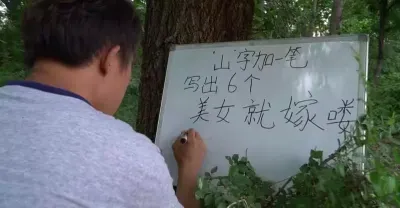 山字加一笔
写出6个
美女就嫁喽